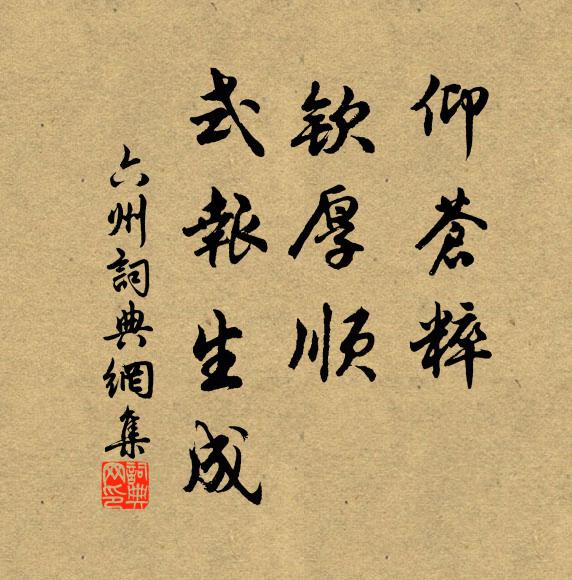 仰蒼粹
欽厚順
式報生成
六州詞典網集
詞典网印